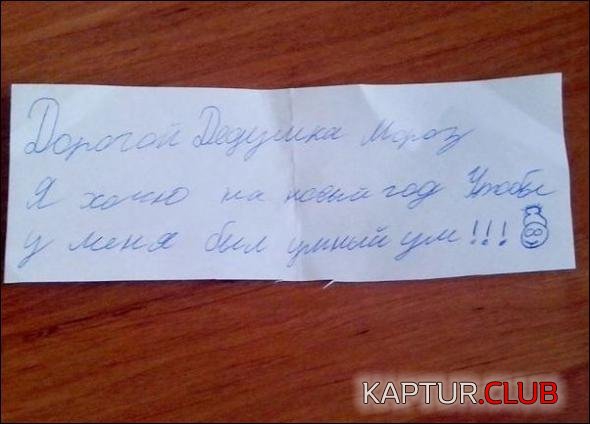 Дорогой Дедушка Мороз
Я хочю на новый год Чтобы
у меня был умный ум!!!
KAPTUR.CLUB